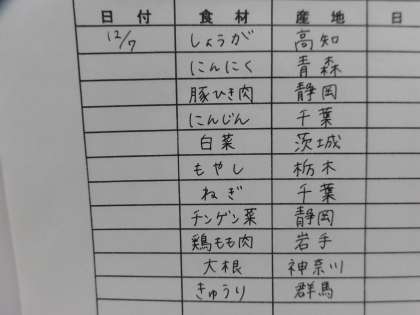 日付 食材 産地 日
12/7 しょうが 高知
にんにく 青森
豚ひき肉 静岡
にんじん 千葉
白菜 茨城
もやし 栃木
ねぎ 千葉
チンゲン菜 静岡
鶏もも肉 岩手
大根 神奈川
きゅうり 群馬